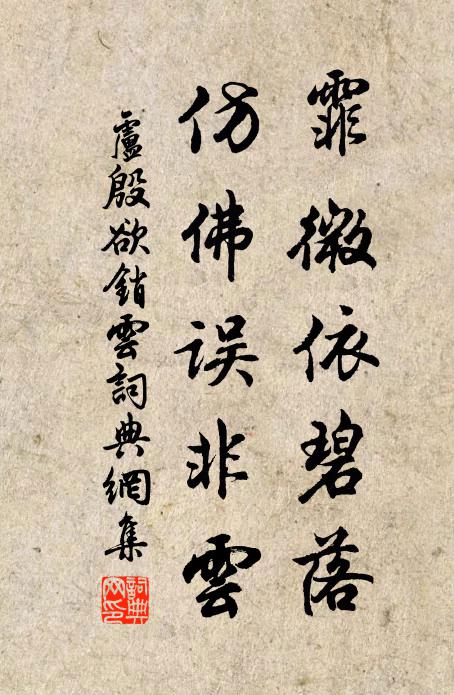 霏微依碧落
仿佛误非雲
盧殷欲銷雲詞典網集
詞典網印